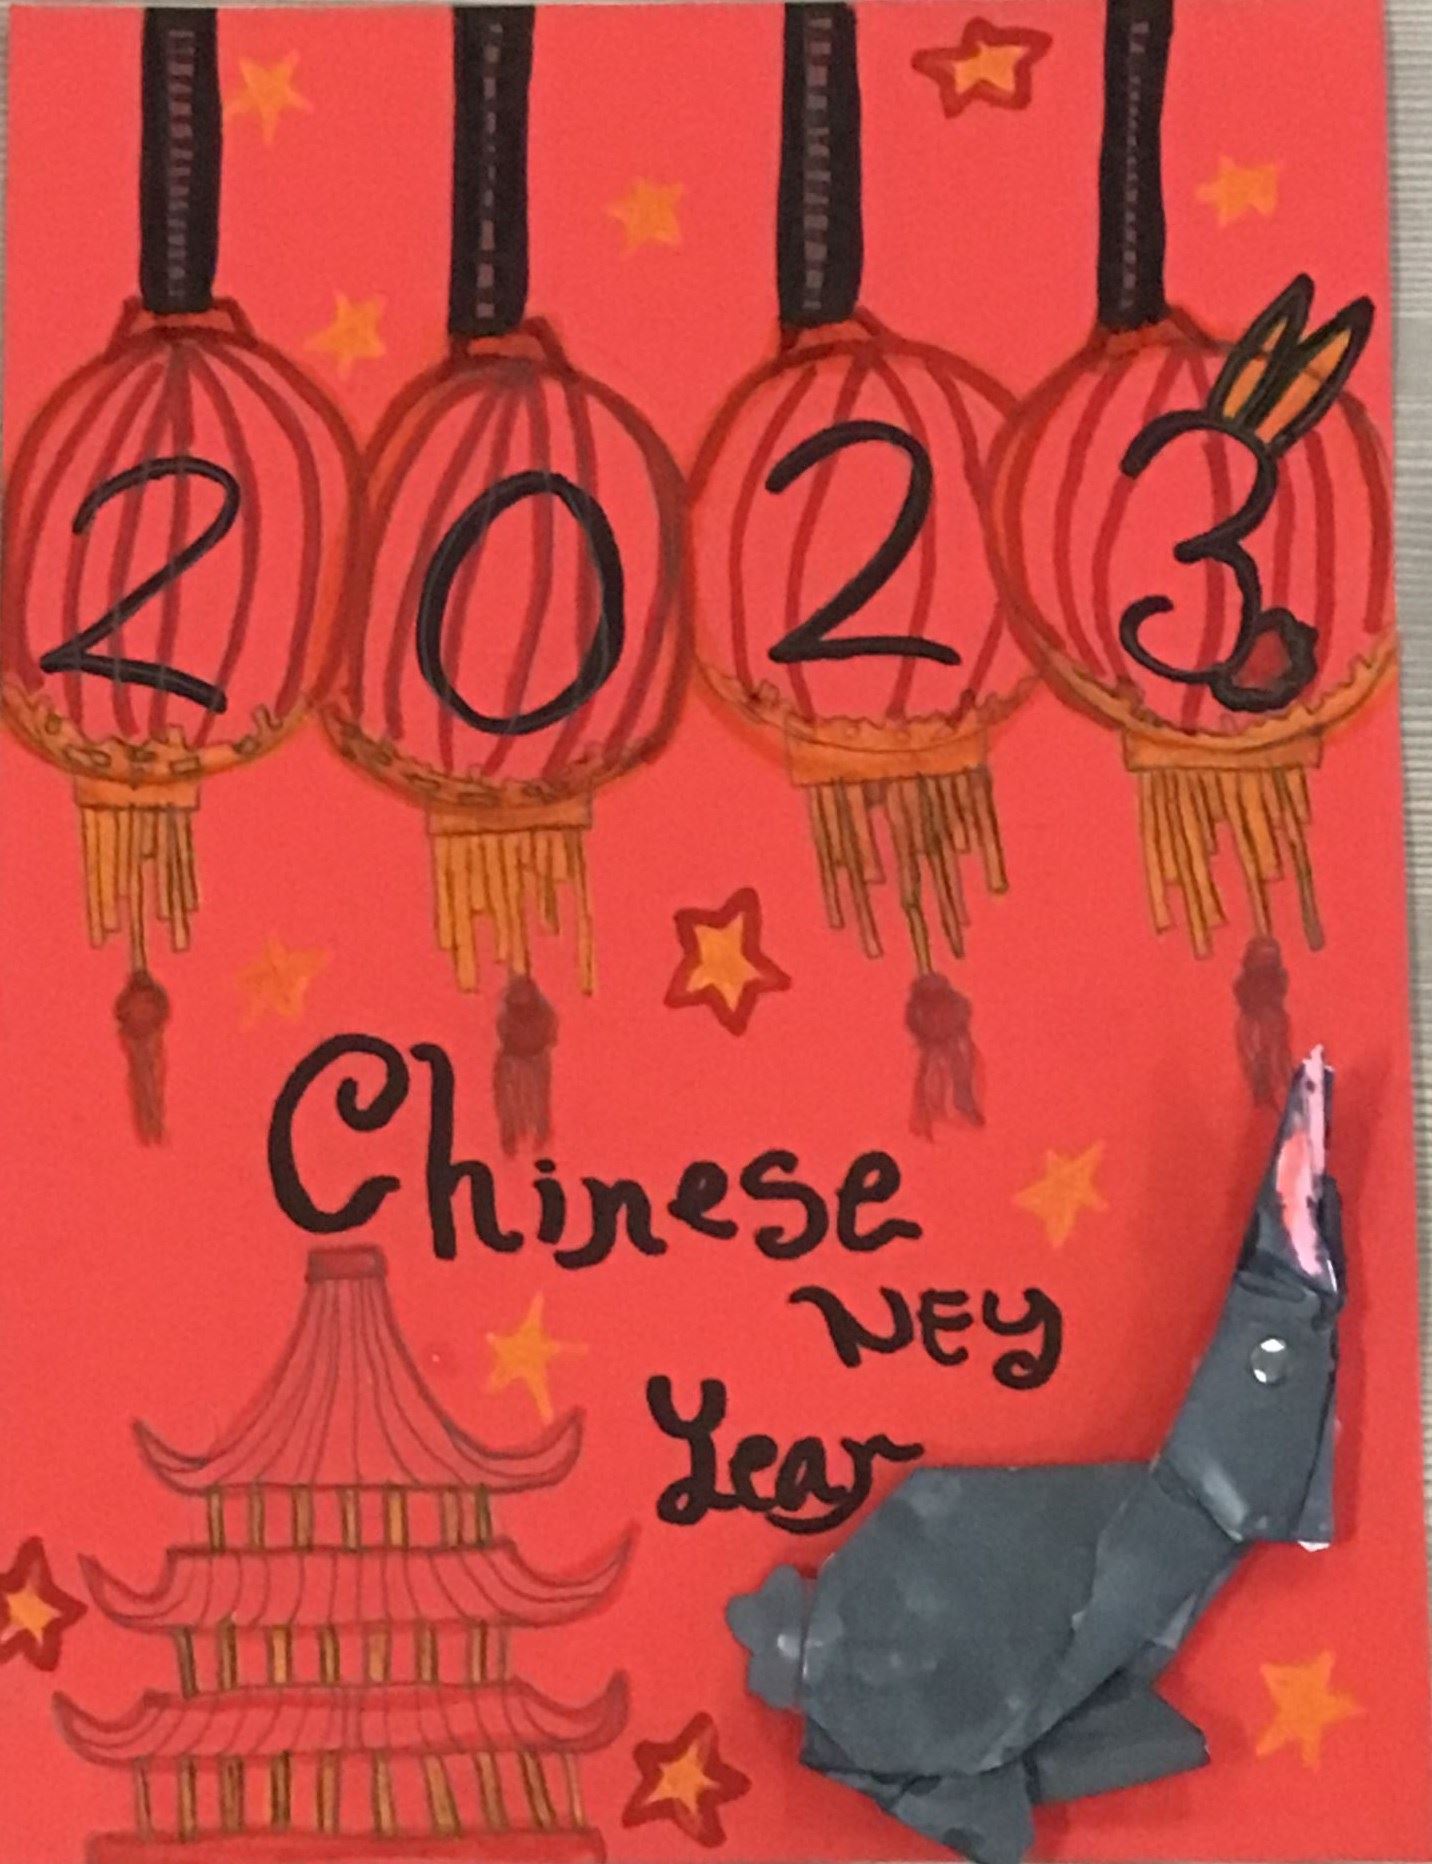 2023
Chinese
NEY
Year